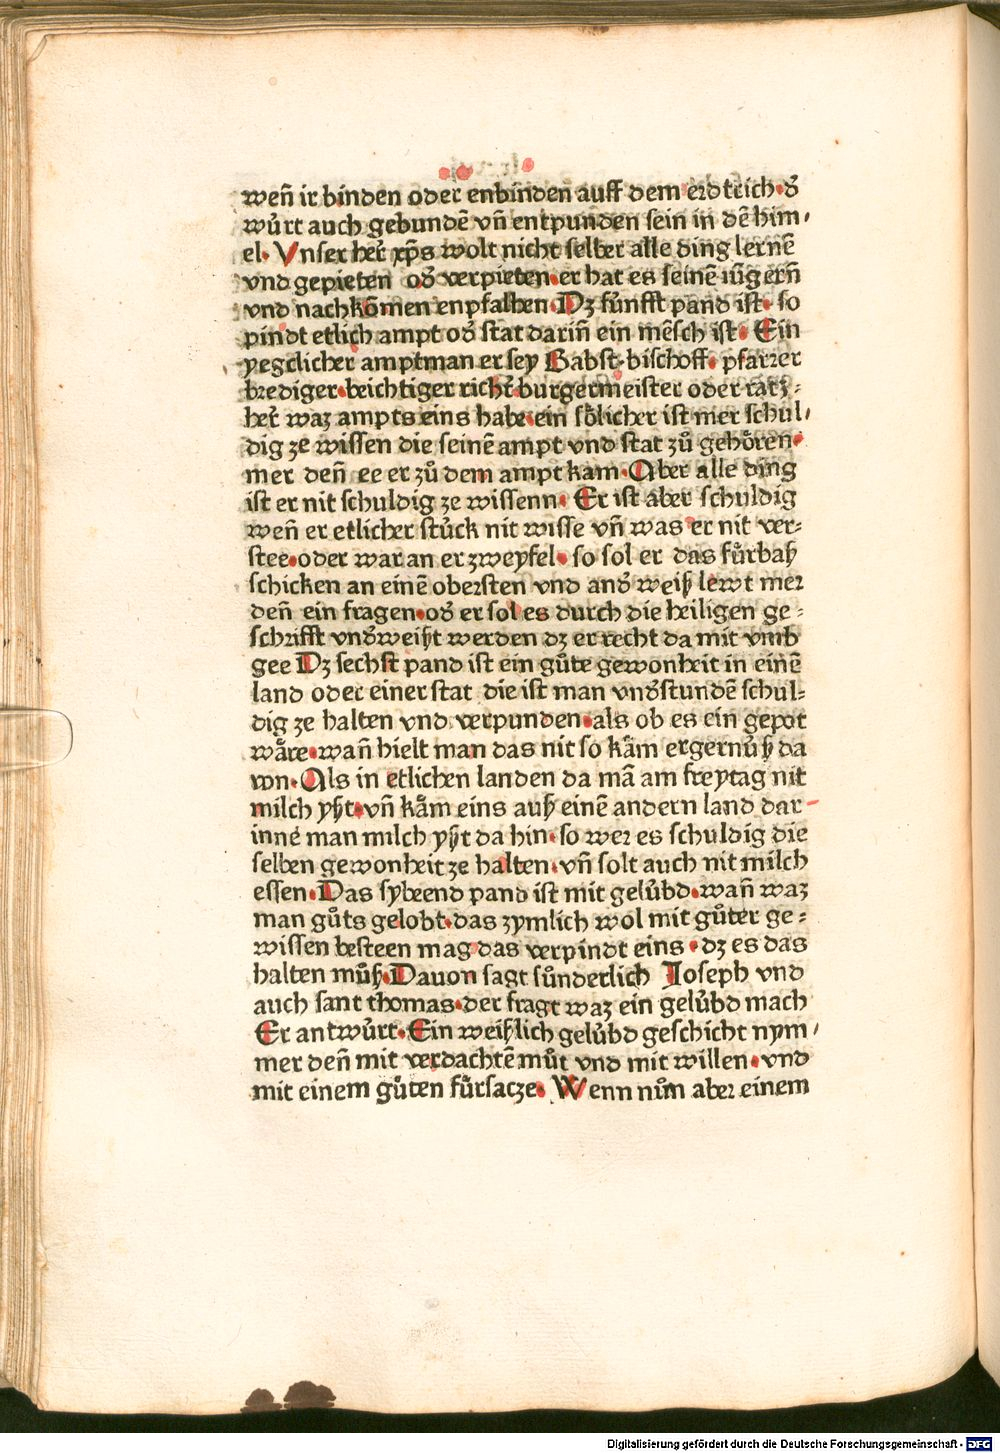 weñ ir binden oder enbinden auff dem erdtrich·d̕
wůrt auch gebundē vñ entpunden sein in dē him⸗
el· Vnser her̕ xp̄s wolt nicht selber alle ding lernē
vnd gepieten od̕ verpieten·er hat es seinē iūgerñ
vnd nachkōmen enpfalhen·Dz fůnfft pand ist· so
pindt etlich ampt od̕ stat dariñ ein mēsch ist· Ein
yegclicher amptman er sey Babst·bischoff· pfarrer
brediger·beichtiger richt̕·burgermeister oder ratz⸗
her̕ waz ampts eins habe·ein sȫlicher ist mer schul⸗
dig ze wissen die seinē ampt vnd stat zů gehȫren·
mer deñ ee er zů dem ampt kam·Aber alle ding
ist er nit schuldig ze wissenn· Er ist aber schuldig
weñ er etlicher stůck nit wisse vñ was er nit ver⸗
stee·oder war an er zweyfel· so sol er das fůrbaß
schicken an einē obersten vnd and̕ weiß lewt mer
deñ ein fragen·od̕ er sol es durch die heiligen ge⸗
schrifft vnd̕weißt werden dz er recht da mit vmb
gee Dz sechst pand ist ein gůte gewonheit in einē
land oder einer stat die ist man vnd̕stundē schul⸗
dig ze halten vnd verpunden·als ob es ein gepot
wåre·wañ hielt man das nit so kåm ergernůß da
von·Als in etlichen landen da mā am freytag nit
milch yßt·vñ kåm eins auß einē andern land dar
inne man milch yßt da hin·so wer es schuldig die
selben gewonheit ze halten·vñ solt auch nit milch
essen·Das sybeend pand ist mit gelůbd·wañ waz
man gůts gelobt·das zymlich wol mit gůter ge⸗
wissen besteen mag das verpindt eins·dz es das
halten můß·Dauon sagt sůnderlich Joseph vnd
auch sant thomas·der fragt waz ein gelůbd mach
Er antwůrt·Ein weißlich gelůbd geschicht nym⸗
mer deñ mit verdachtē můt vnd mit willen·vnd
mit einem gůten fůrsacze· Wenn nům aber einem
Digitalisierung gefördert durch die Deutsche Forschungsgemeinschaft - DFG